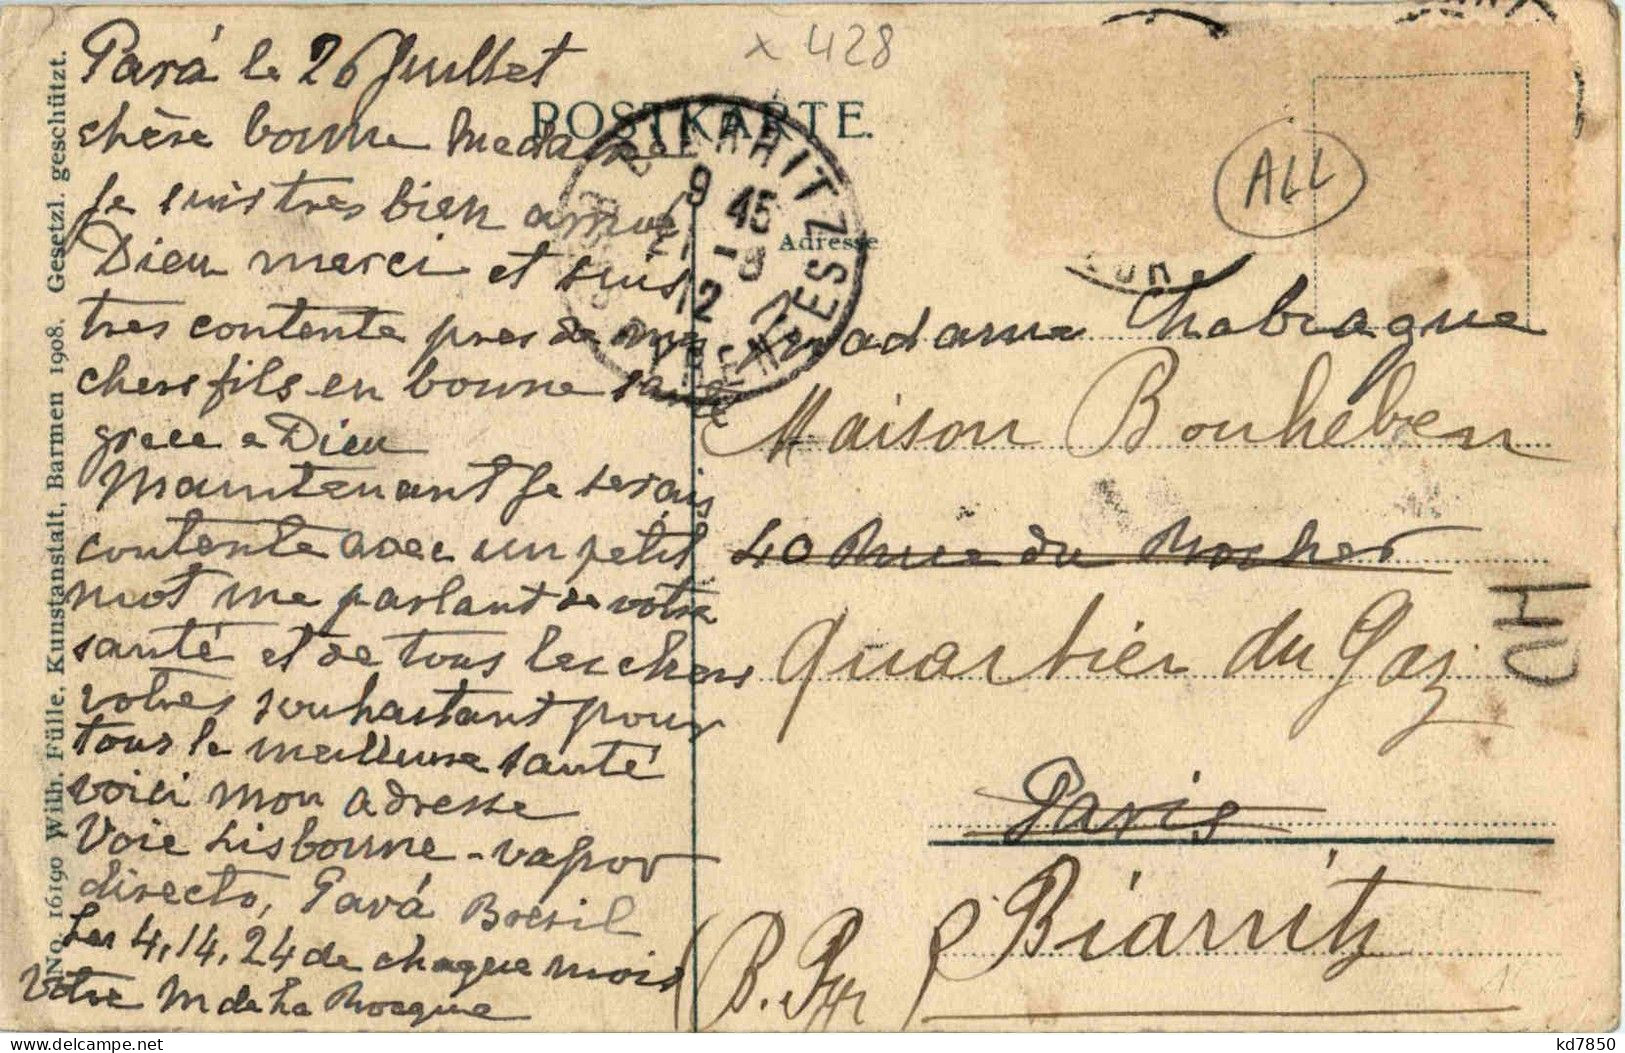 x 428
Pará le 26 Juillet
chère bonne Madame
Je suis tres bien arrivée
Dieu merci et suis
tres contente pres de mes
chers fils en bonne santé
grace a Dieu
Maintenant Je serais
contente avec un petit
mot me parlant de votre
santé et de tous les chers
votres souhaitant pour
tous la meilleure santé
voici mon adresse
Voie Lisbonne - vapor
directo, Pará Bresil
Les 4, 14, 24 de chaque mois
Votre M de La Rocque
POSTKARTE.
Adresse
ALL
9 45
12
BIARRITZ
Madame Chabrague
Maison Bonheben
40 Rue du Rocher
Quartier du Gaz
Paris
Biarritz
(B. Pyr)
No. 16190 Wilh. Fülle, Kunstanstalt, Barmen 1908. Gesetzl. geschützt.
kd7850